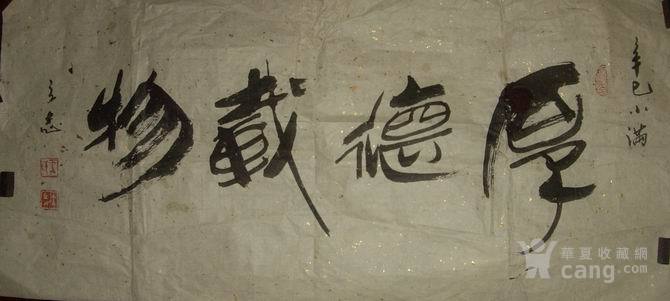 辛巳小满
厚德载物
華夏收藏網
cang.com